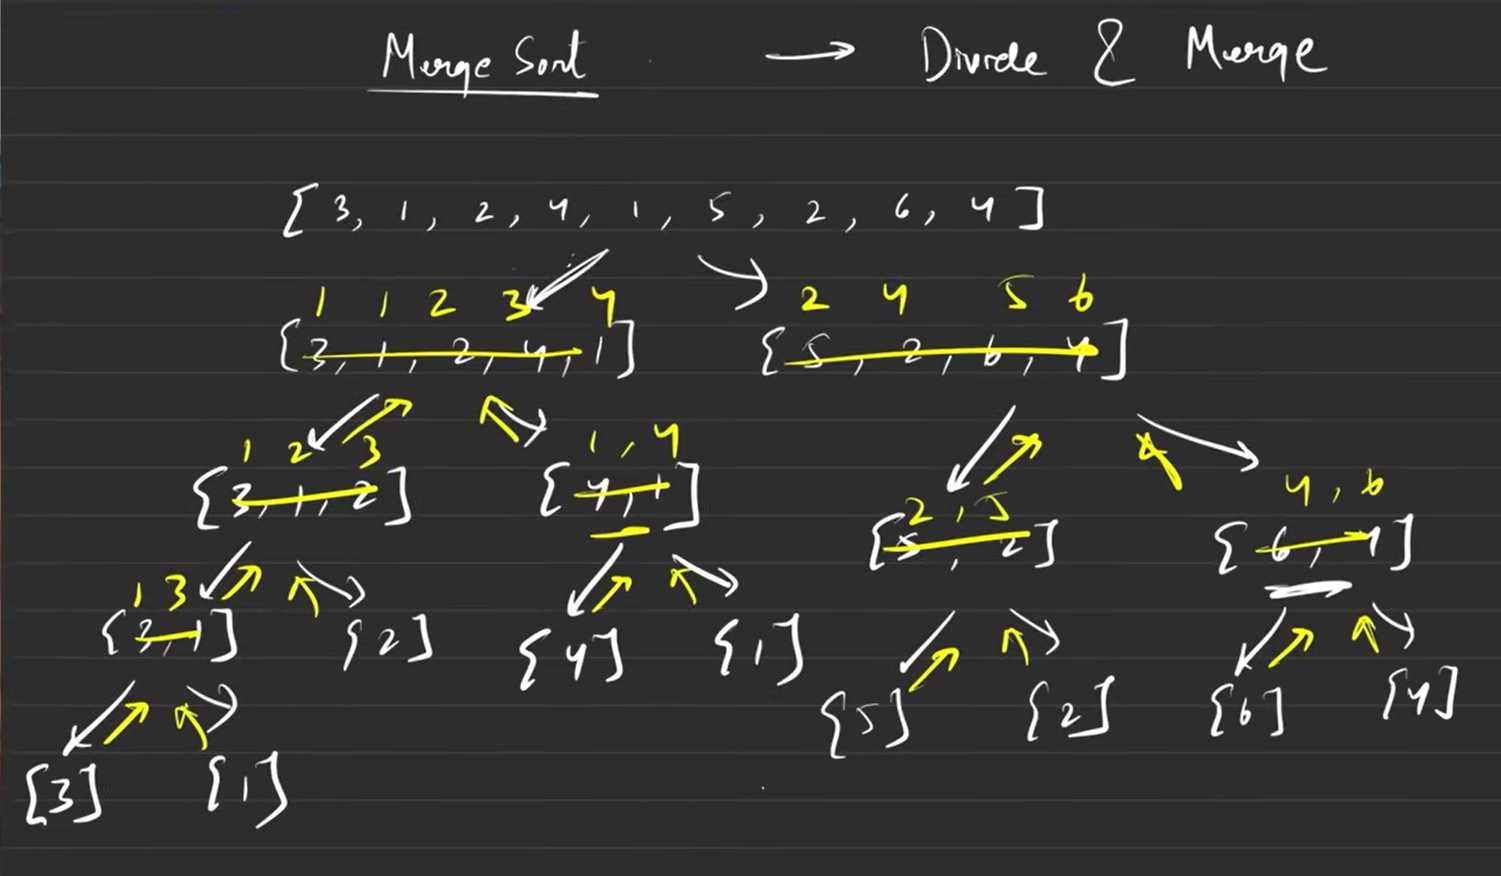 Merge Sort → Divide & Merge
[3, 1, 2, 4, 1, 5, 2, 6, 4]
1 1 2 3 4 2 4 5 6
[3, 1, 2, 4, 1] [5, 2, 6, 4]
1 2 3 1, 4
[3, 1, 2] [4, 1]
2, 5 4, 6
[5, 2] [6, 4]
1 3
[3, 1] [2] [4] [1]
[5] [2] [6] [4]
[3] [1]